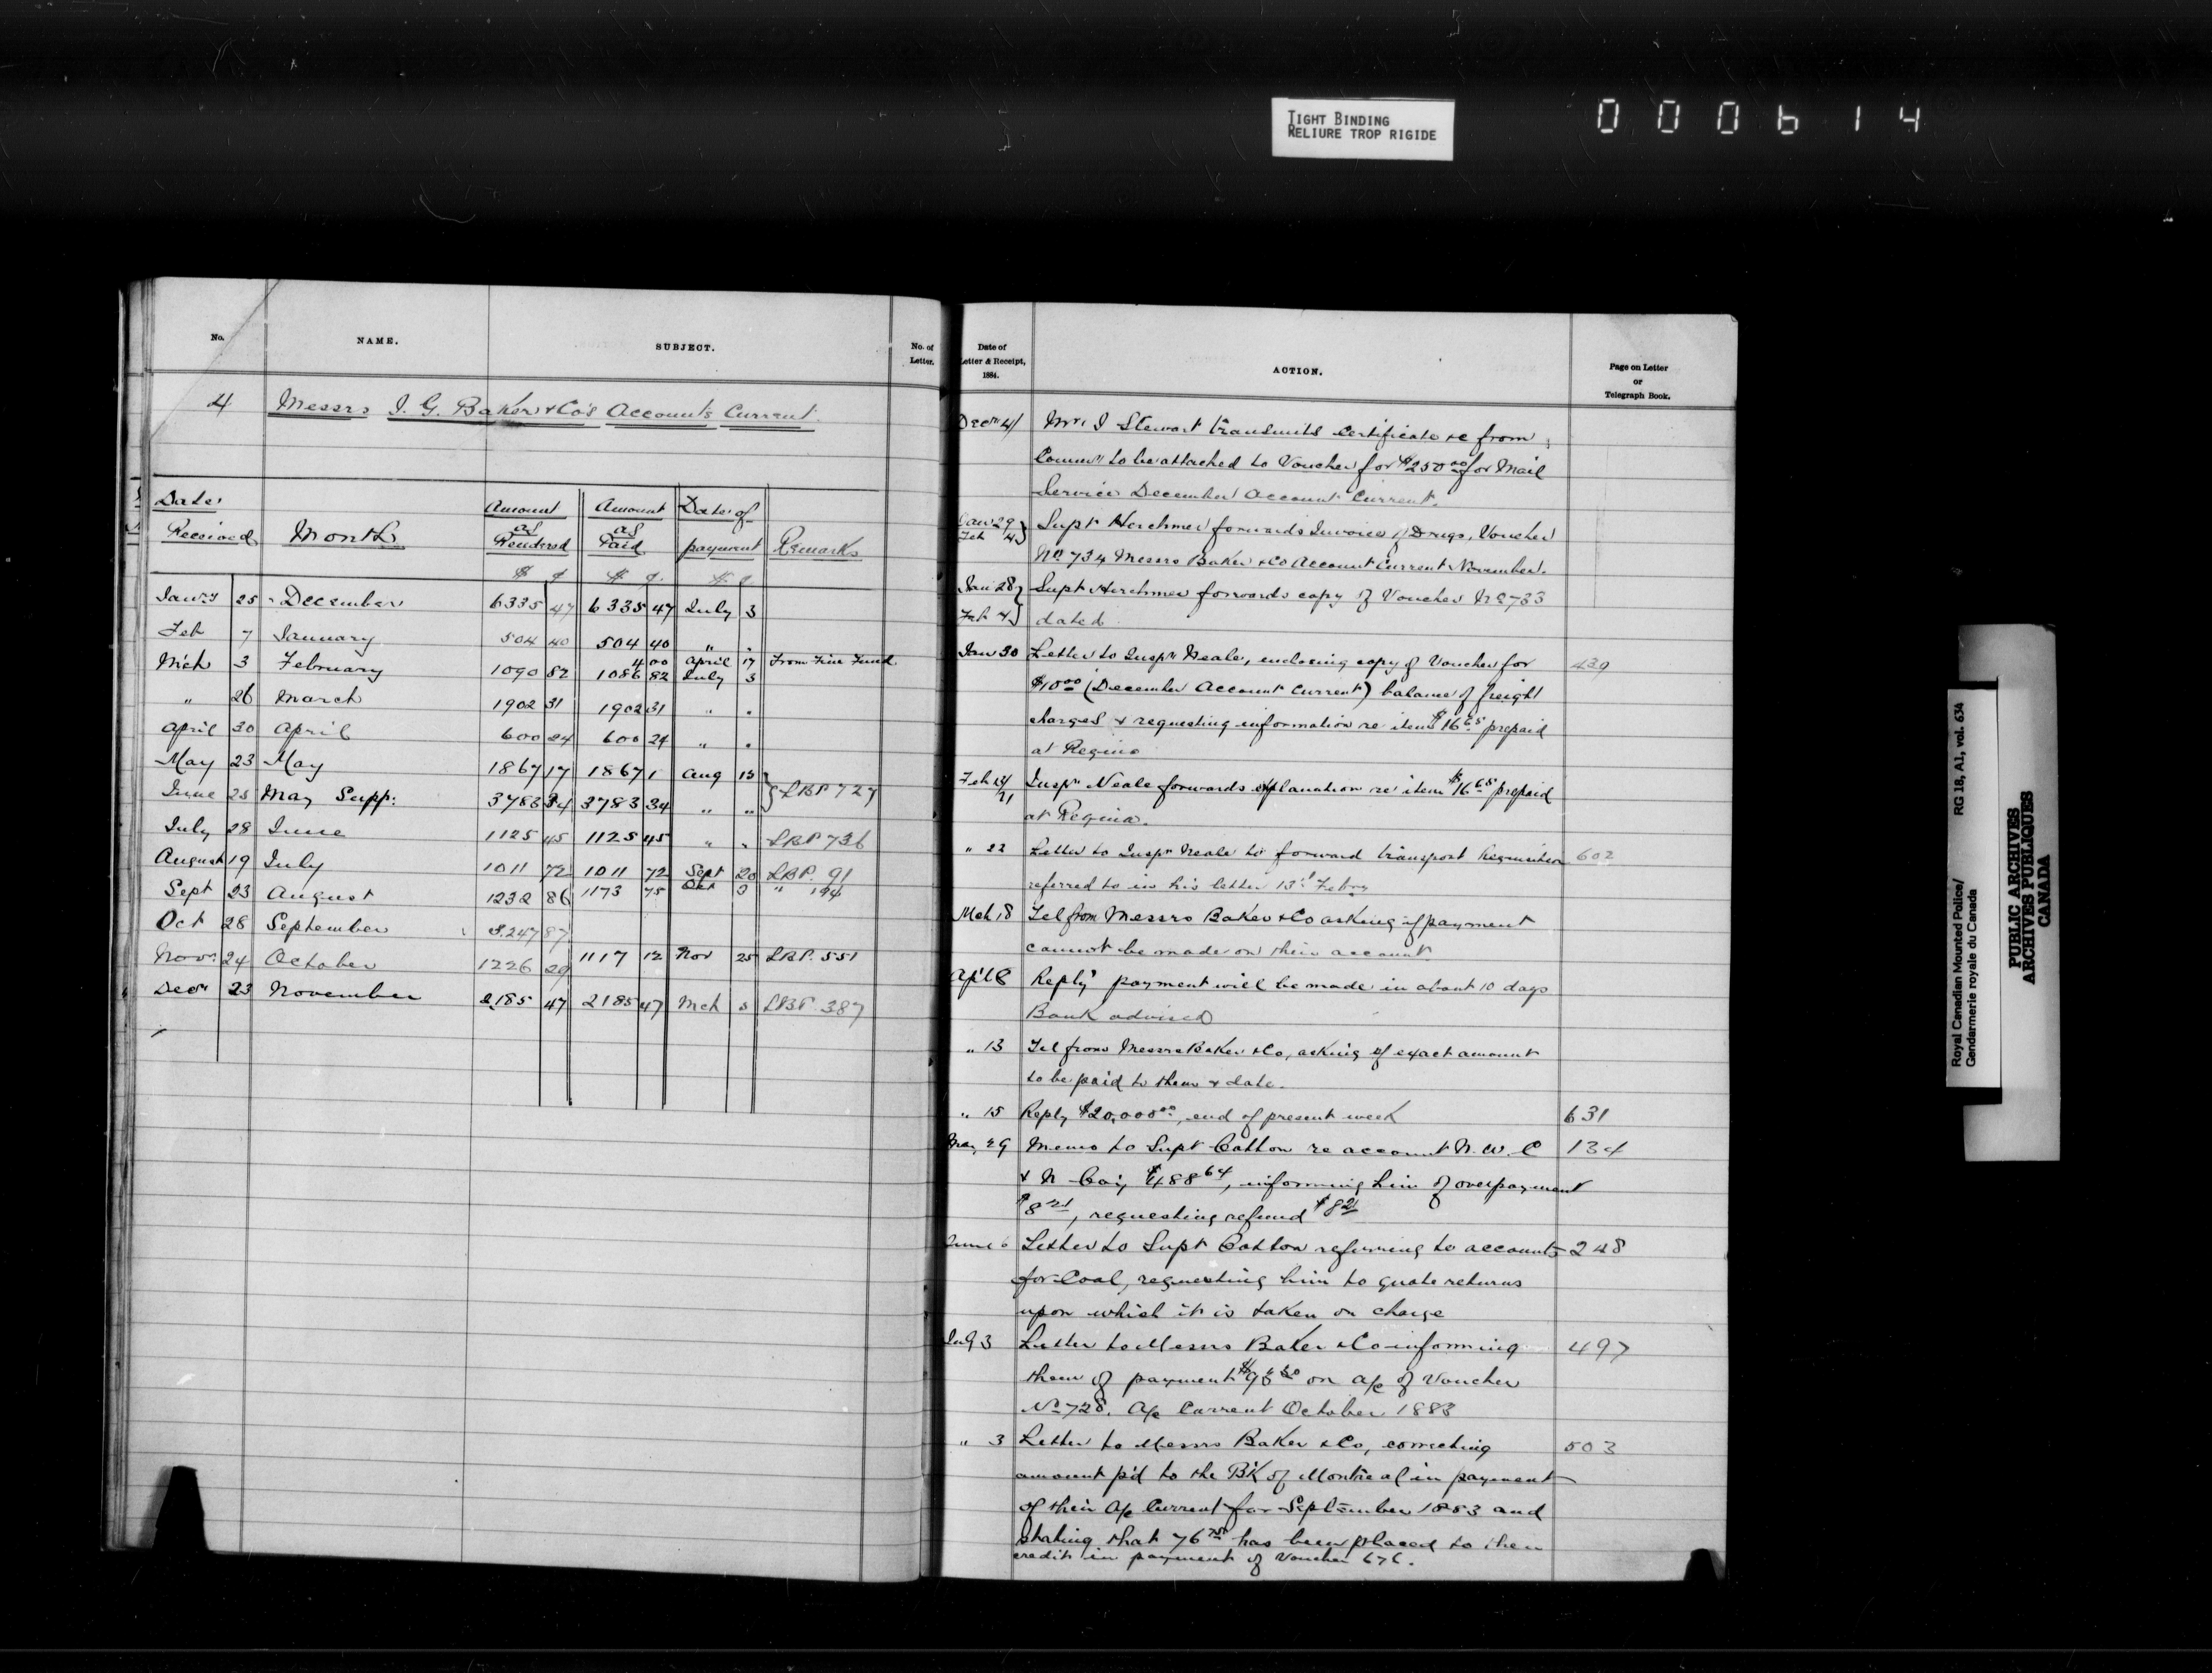 TIGHT BINDING
RELIURE TROP RIGIDE
000614
No. NAME. SUBJECT. No. of Letter.
4 Messrs I. G. Baker & Co's Accounts Current.
Date Received Month Amount as Rendered Amount as Paid Date of payment Remarks
$ ¢ $ ¢
Jany 25 December 6335 47 6335 47 July 3
Feb 7 January 504 40 504 40 " "
4 00 April 17 From Fine Fund
Mch 3 February 1090 82 1086 82 July 3
" 26 March 1902 31 1902 31 " "
April 30 April 600 24 600 24 " "
May 23 May 1867 17 1867 1 Aug 13
June 25 May Supp: 3783 34 3783 34 " " LBP 727
July 28 June 1125 45 1125 45 " " LBP 736
August 19 July 1011 72 1011 72 Sept 20 LBP. 91
Sept 23 August 1232 86 1173 75 Oct 3 " 194
Oct 28 September 3.247 87
Novr 24 October 1226 29 1117 12 Nov 25 LBP. 551
Decr 23 November 2185 47 2185 47 Mch 3 LBP. 387
Date of Letter & Receipt, 1884. ACTION. Page on Letter or Telegraph Book.
Decr 4 Mr. I Stewart transmits Certificate &c from
Commr to be attached to Voucher for $250 00 for Mail
Service December Account Current.
Jan 29 Feb 4 Supt Herchmer forwards Invoice of Drugs, Voucher
No 734 Messrs Baker & Co Account Current November.
Jan 28 Feb 4 Supt Herchmer forwards copy of Voucher No 733
dated
Jan 30 Letter to Inspr Neale, enclosing copy of Voucher for 439
$10 00 (December Account Current) balance of freight
charges & requesting information re item $16 65 prepaid
at Regina
Feb 13/21 Inspr Neale forwards explanation re item $16 65 prepaid
at Regina.
" 22 Letter to Inspr Neale to forward transport Requisition 602
referred to in his letter 13th Febry
Mch 18 Tel from Messrs Baker & Co asking if payment
cannot be made on their account
Apl 8 Reply payment will be made in about 10 days
Bank advised
" 13 Tel from Messrs Baker & Co, asking if exact amount
to be paid to them & date.
" 15 Reply $20,000 00, end of present week 631
May 29 Memo to Supt Cotton re account N. W. C 134
& N Coy $488 64, informing him of overpayment
$8 21, requesting refund $8 21
June 6 Letter to Supt Cotton referring to accounts 248
for Coal, requesting him to quote returns
upon which it is taken on charge
July 3 Letter to Messrs Baker & Co informing 497
them of payment on a/c of Voucher
No 728. A/c Current October 1883
" 3 Letter to Messrs Baker & Co, correcting 503
amount p'd to the B'k of Montreal in payment
of their A/c Current for September 1883 and
stating that 76 75 has been placed to their
credit in payment of Voucher 676.
Royal Canadian Mounted Police/
Gendarmerie royale du Canada
RG 18, A1, vol. 634
PUBLIC ARCHIVES
ARCHIVES PUBLIQUES
CANADA